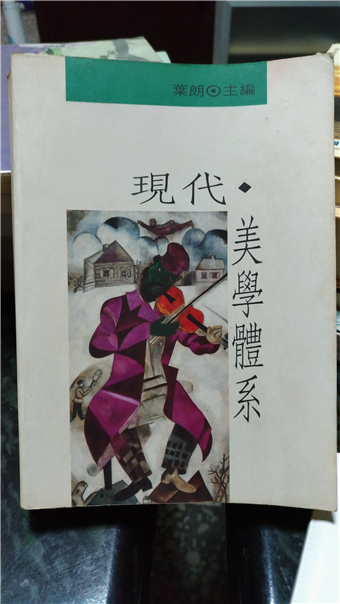 葉朗⊙主編
現代◆
美學體系